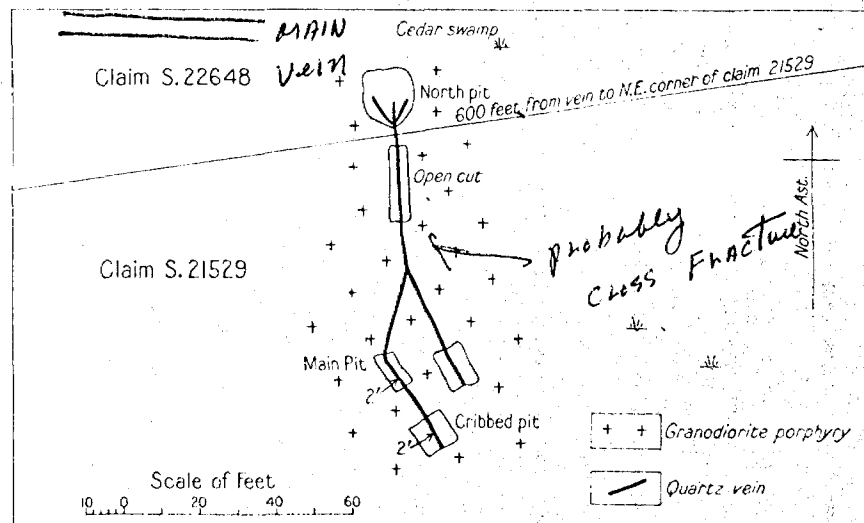 MAIN
Vein
Cedar swamp
Claim S. 22648
North pit
600 feet from vein to N.E. corner of claim 21529
Open cut
North Ast.
probably
cross Fracture
Claim S. 21529
Main Pit
2'
Cribbed pit
2'
Granodiorite porphyry
Quartz vein
Scale of Feet
10 0 20 60